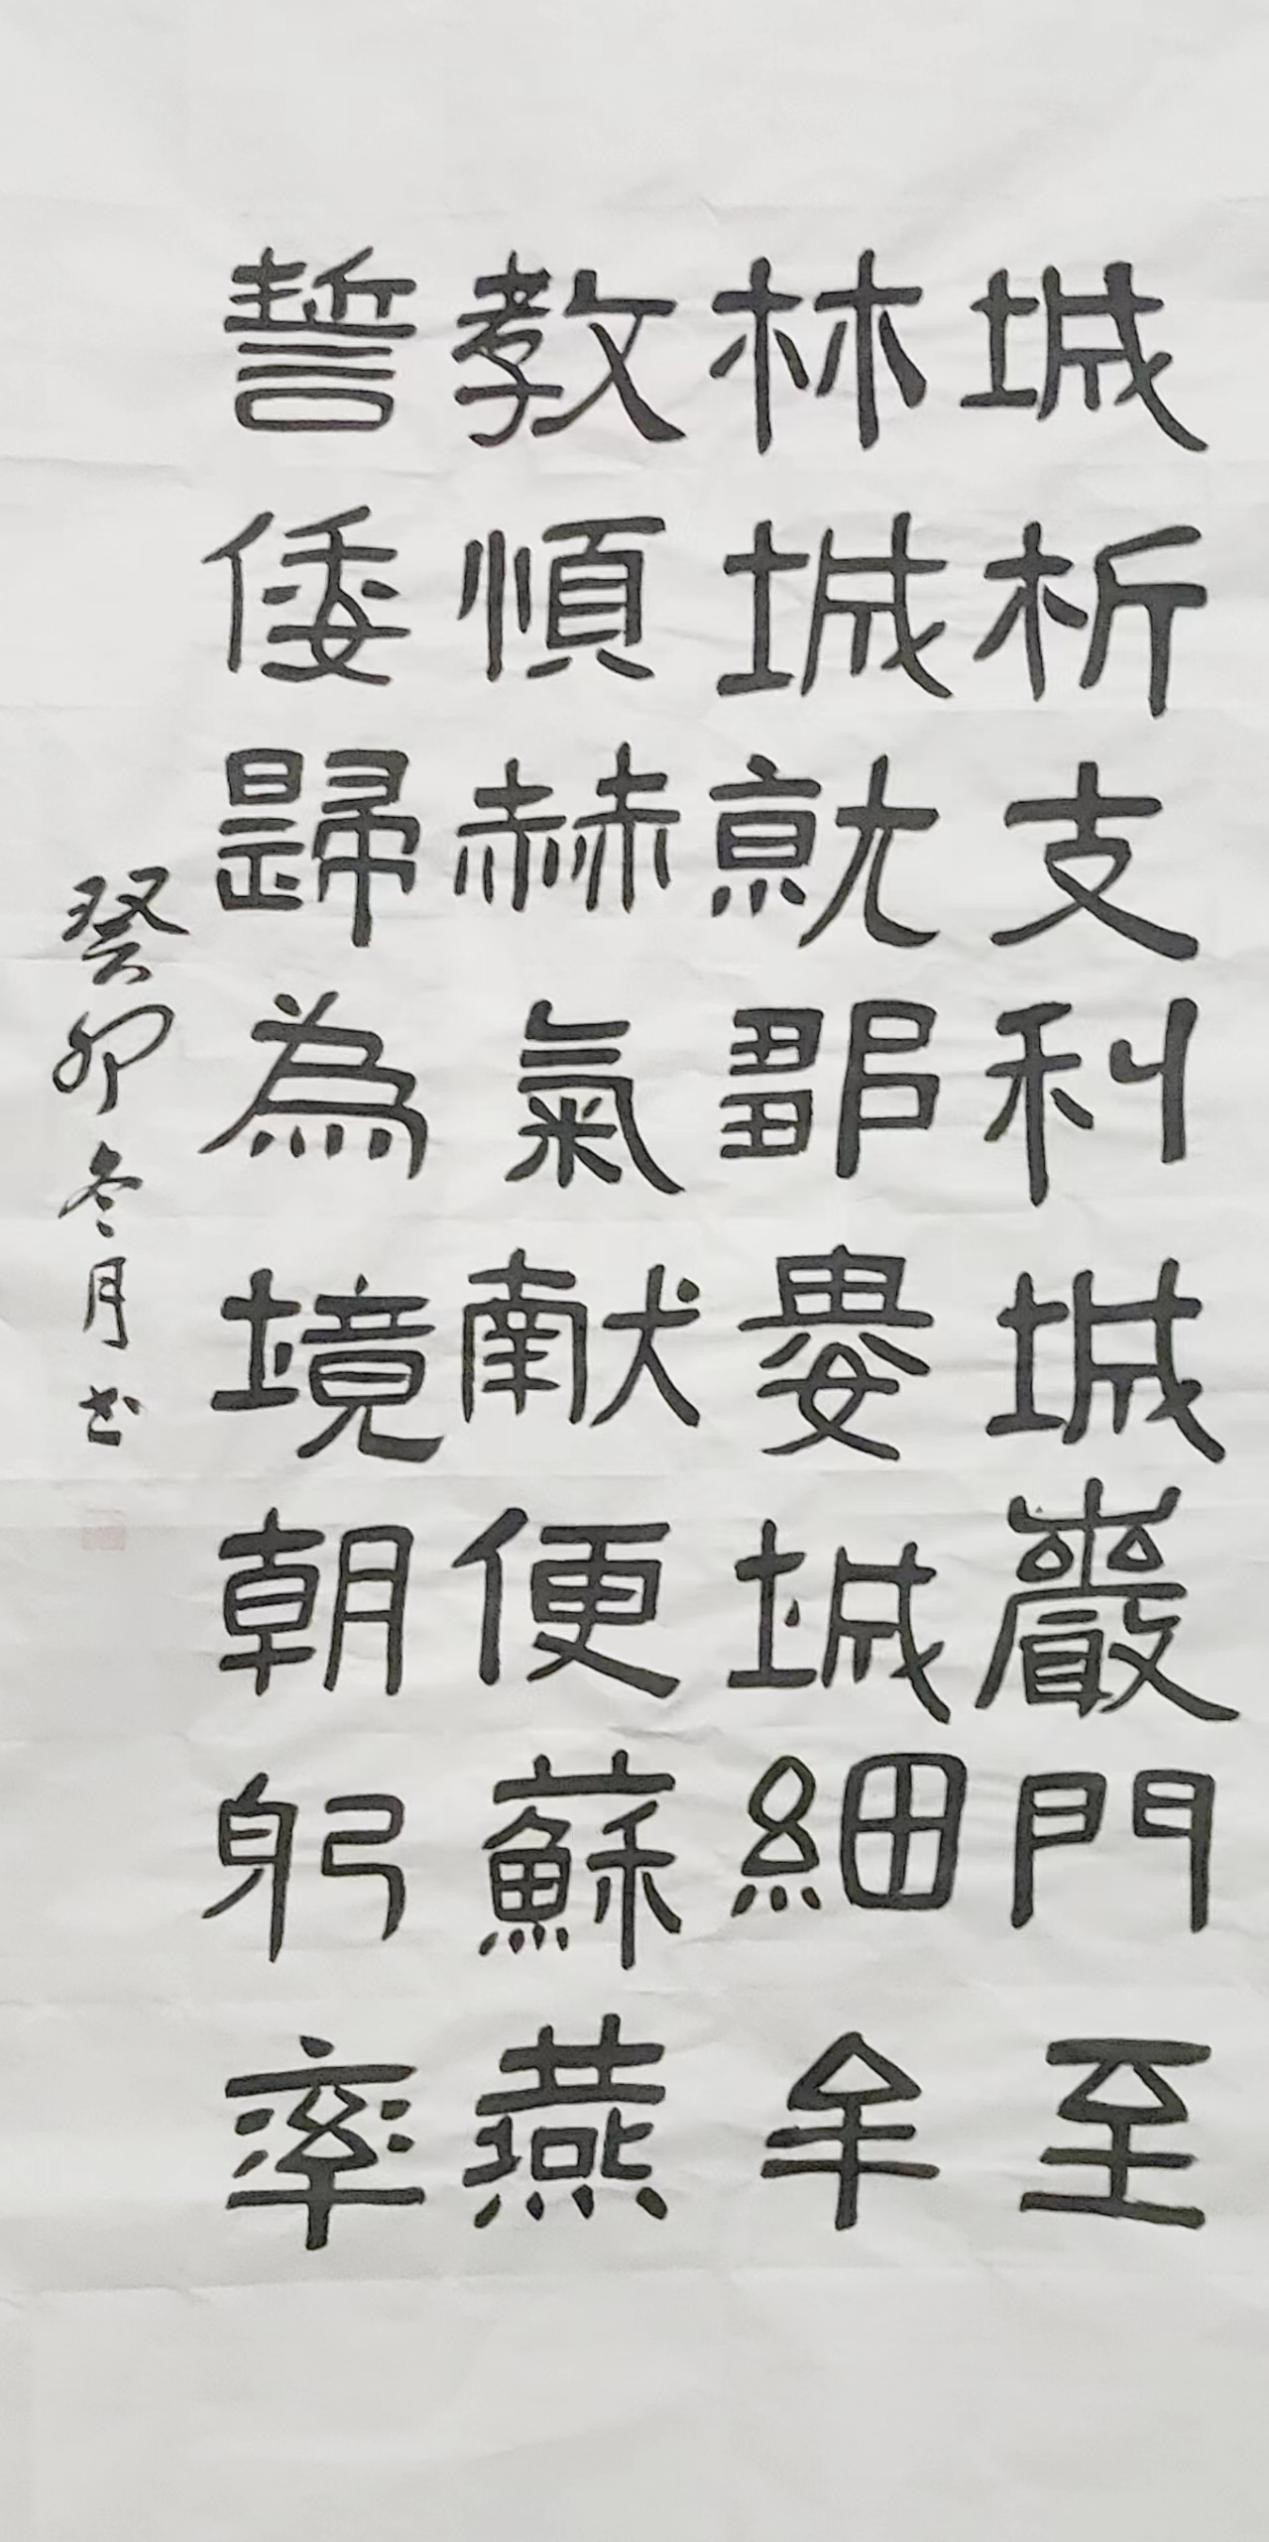 城析支利城巖門至
林城就鄒婁城細牟
教順赫氣献便蘇燕
誓倭歸為境朝躬率
癸卯冬月书